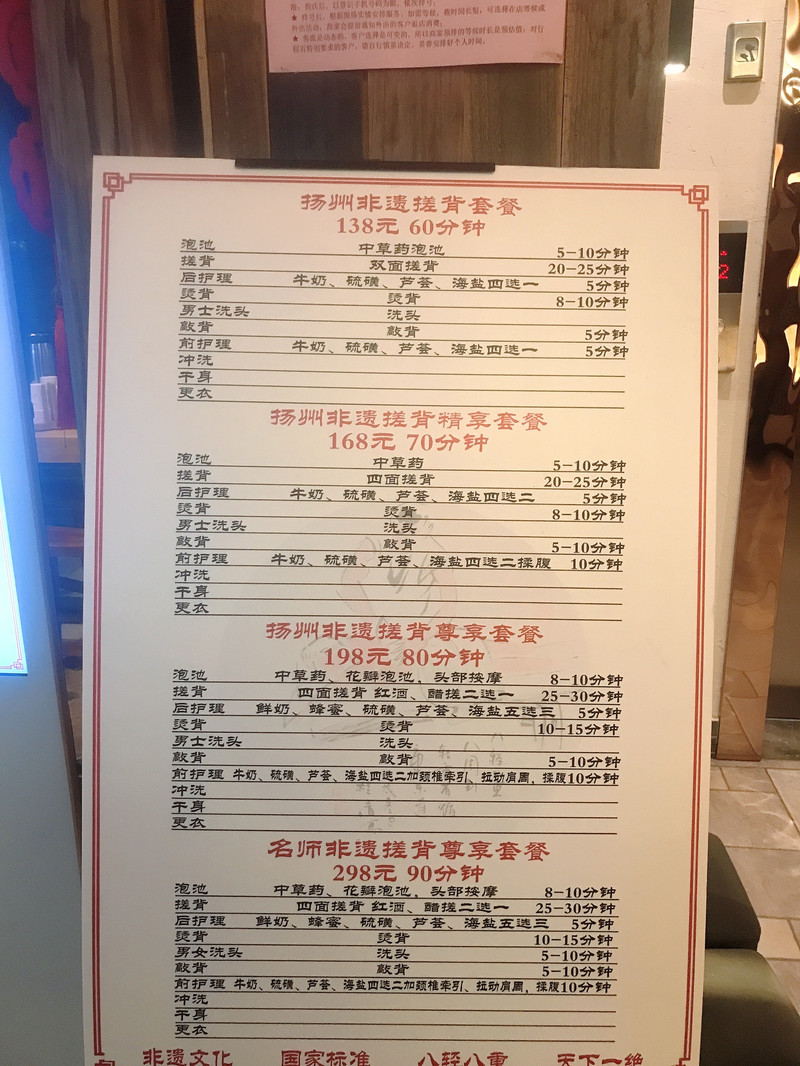 ★ 排号后，根据现场实情安排服务，如需等候，视时间长短，可选择在店等候或
外出活动；商家会提前通知外出的客户返店消费；
★ 客流是动态的，客户选择是可变的，所以商家预排的等候时长是预估值；对行
程有特别要求的客户，请自行慎重决定，妥善安排好个人时间。
扬州非遗搓背套餐
138元 60分钟
泡池 中草药泡池 5-10分钟
搓背 双面搓背 20-25分钟
后护理 牛奶、硫磺、芦荟、海盐四选一 5分钟
烫背 烫背 8-10分钟
男士洗头 洗头
敲背 敲背 5分钟
前护理 牛奶、硫磺、芦荟、海盐四选一 5分钟
冲洗
干身
更衣
扬州非遗搓背精享套餐
168元 70分钟
泡池 中草药 5-10分钟
搓背 四面搓背 20-25分钟
后护理 牛奶、硫磺、芦荟、海盐四选二 5分钟
烫背 烫背 8-10分钟
男士洗头 洗头
敲背 敲背 5-10分钟
前护理 牛奶、硫磺、芦荟、海盐四选二揉腹 10分钟
冲洗
干身
更衣
扬州非遗搓背尊享套餐
198元 80分钟
泡池 中草药、花瓣泡池，头部按摩 8-10分钟
搓背 四面搓背 红酒、醋搓二选一 25-30分钟
后护理 鲜奶、蜂蜜、硫磺、芦荟、海盐五选三 5分钟
烫背 烫背 10-15分钟
男士洗头 洗头
敲背 敲背 5-10分钟
前护理 牛奶、硫磺、芦荟、海盐四选二加颈椎牵引、拉动肩周，揉腹10分钟
冲洗
干身
更衣
名师非遗搓背尊享套餐
298元 90分钟
泡池 中草药、花瓣泡池，头部按摩 8-10分钟
搓背 四面搓背 红酒、醋搓二选一 25-30分钟
后护理 鲜奶、蜂蜜、硫磺、芦荟、海盐五选三 5分钟
烫背 烫背 10-15分钟
男女洗头 洗头 5-10分钟
敲背 敲背 5-10分钟
前护理 牛奶、硫磺、芦荟、海盐四选二加颈椎牵引、拉动肩周，揉腹10分钟
冲洗
干身
更衣
非遗文化 国家标准 八轻八重 天下一绝
2